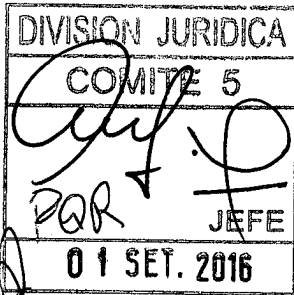 DIVISION JURIDICA
COMITE 5
PQR
JEFE
01 SET. 2016